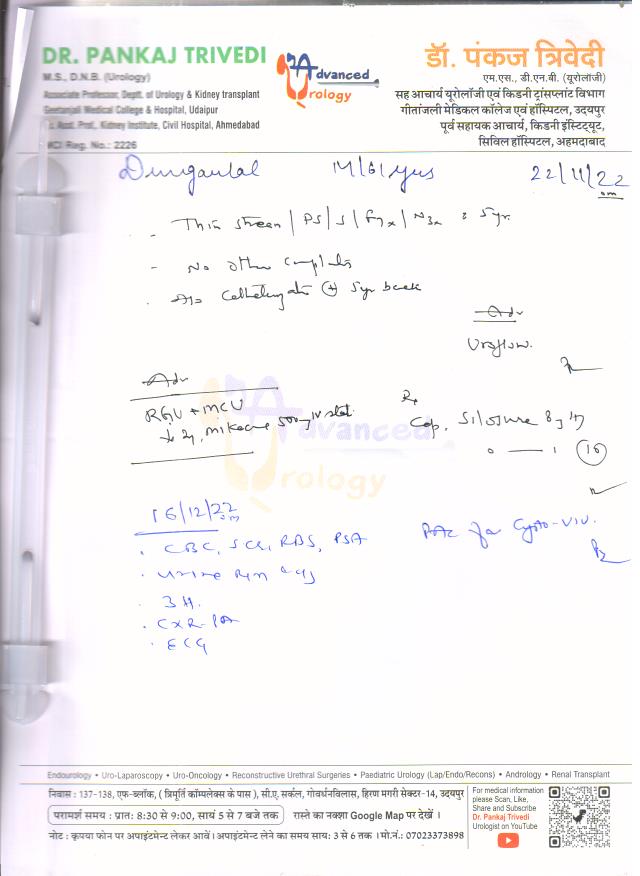 DR. PANKAJ TRIVEDI
M.S., D.N.B. (Urology)
Associate Professor, Deptt. of Urology & Kidney transplant
Geetanjali Medical College & Hospital, Udaipur
Asst. Prof., Kidney Institute, Civil Hospital, Ahmedabad
MCI Reg. No.: 2226
Advanced
Urology
डॉ. पंकज त्रिवेदी
एम.एस., डी.एन.बी. (यूरोलॉजी)
सह आचार्य यूरोलॉजी एवं किडनी ट्रांसप्लांट विभाग
गीतांजली मेडिकल कॉलेज एवं हॉस्पिटल, उदयपुर
पूर्व सहायक आचार्य, किडनी इंस्टिट्यूट,
सिविल हॉस्पिटल, अहमदाबाद
22/11/22
- Thin stream / PS / S /
- No other complaints
5yr back
Adv
Uroflow.
Adv
RGU + MCU
500 IV stat
Rx
Cap. Silosure 8
0 — 1 (10)
Advanced
Urology
16/12/22
. CBC, SCr, RBS, PSA
. Urine R/M
. 3H.
. CXR-PA
. ECG
PAC for Cysto-VIU.
Endourology • Uro-Laparoscopy • Uro-Oncology • Reconstructive Urethral Surgeries • Paediatric Urology (Lap/Endo/Recons) • Andrology • Renal Transplant
निवास : 137-138, एफ-ब्लॉक, ( त्रिमूर्ति कॉम्पलेक्स के पास ), सी.ए. सर्कल, गोवर्धनविलास, हिरण मगरी सेक्टर-14, उदयपुर
परामर्श समय : प्रातः 8:30 से 9:00, सायं 5 से 7 बजे तक रास्ते का नक्शा Google Map पर देखें ।
नोट : कृपया फोन पर अपाइंटमेन्ट लेकर आवें। अपाइंटमेन्ट लेने का समय सायः 3 से 6 तक । मो.नं.: 07023373898
For medical information
please Scan, Like,
Share and Subscribe
Dr. Pankaj Trivedi
Urologist on YouTube